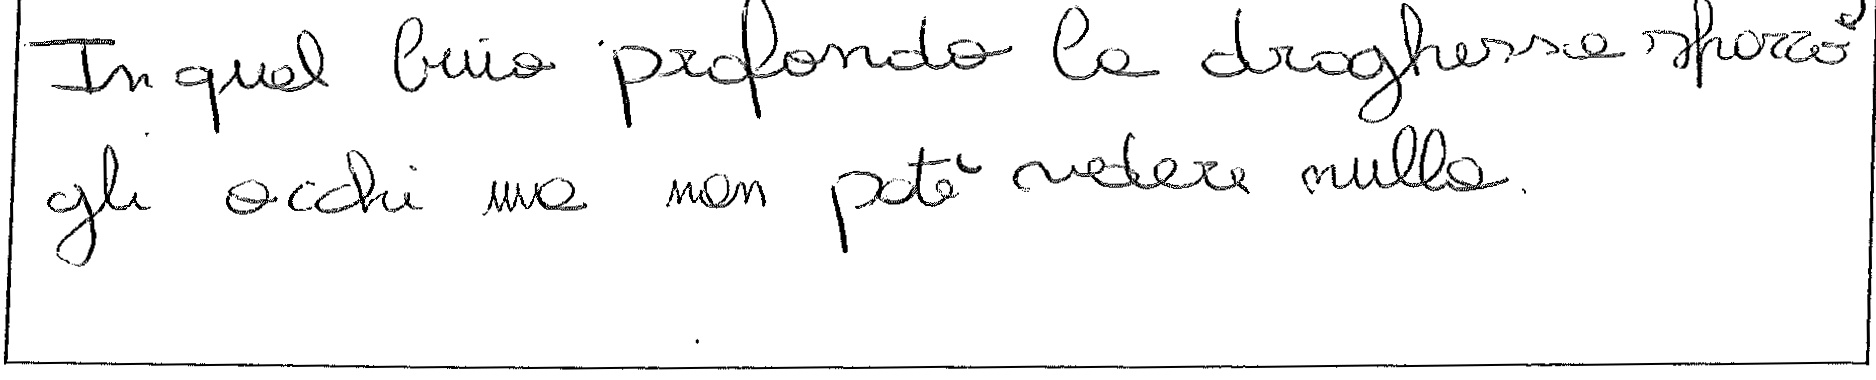 In quel buio profondo la draghessa sporcò
gli occhi ma non poté vedere nulla.